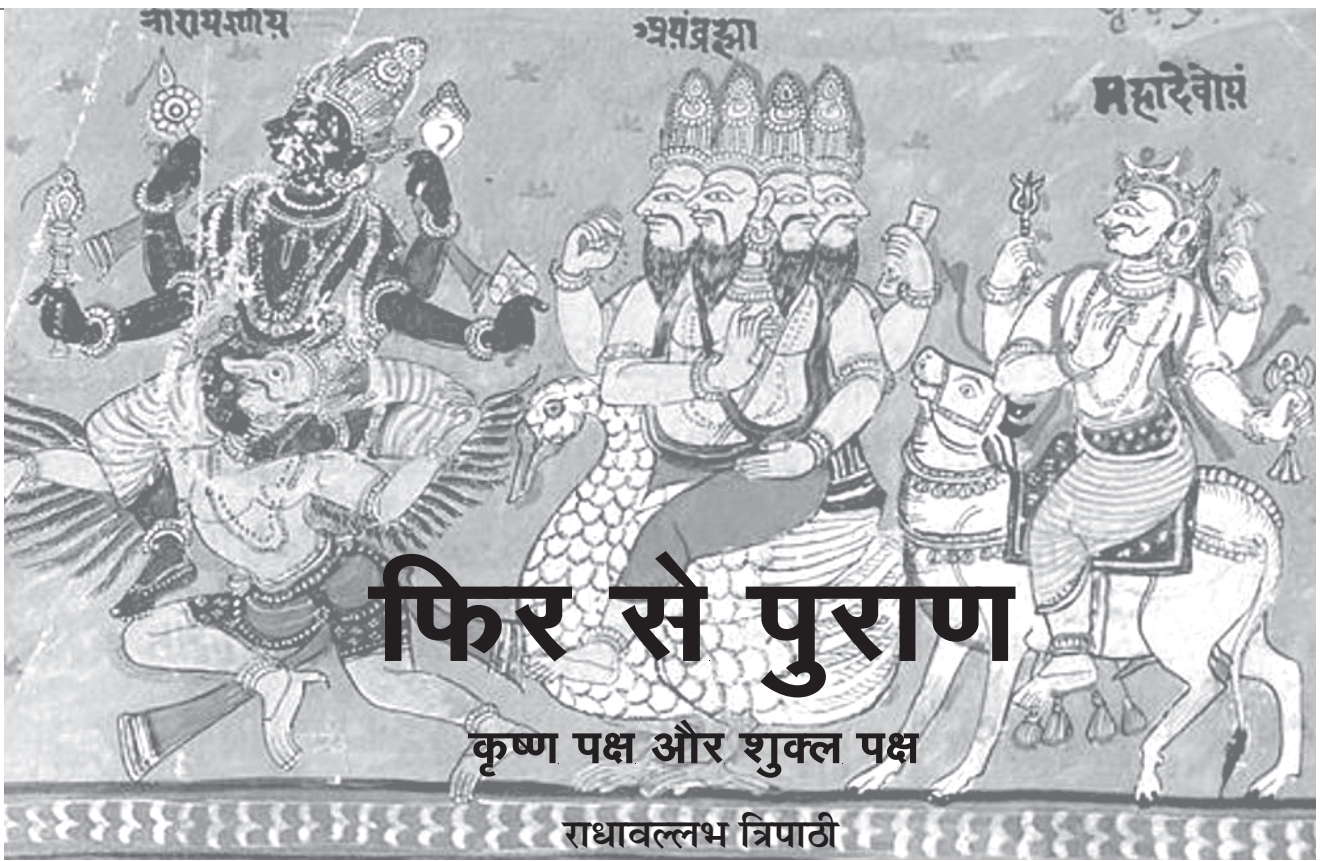 नारायणोय
अयंब्रह्मा
महादेवोयं
फिर से पुराण
कृष्ण पक्ष और शुक्ल पक्ष
राधावल्लभ त्रिपाठी